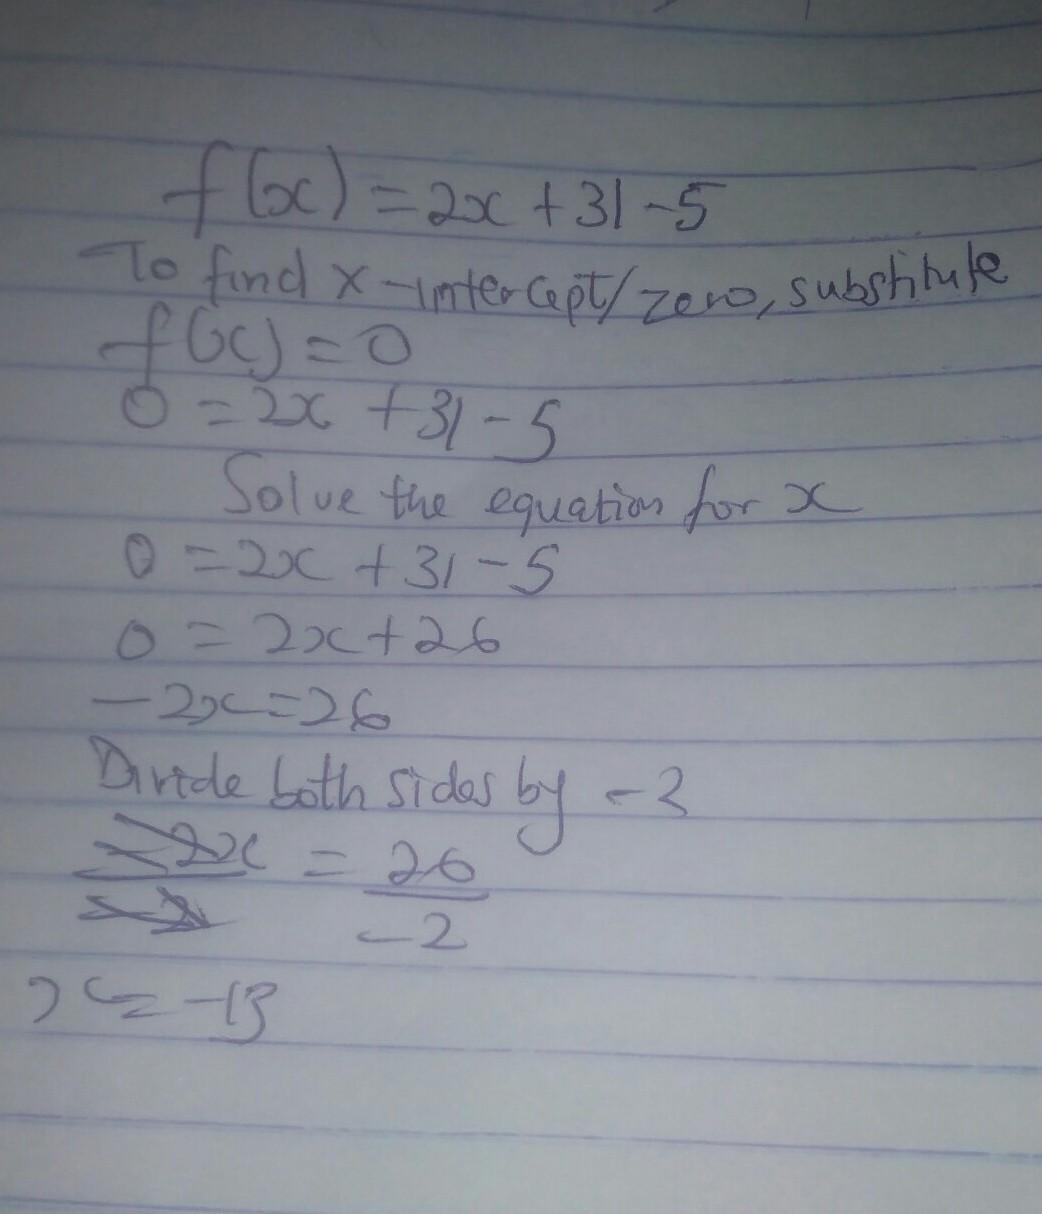 f(x) = 2x + 31 - 5
To find x-intercept/zero, substitute
f(x) = 0
0 = 2x + 31 - 5
Solve the equation for x
0 = 2x + 31 - 5
0 = 2x + 26
- 2x = 26
Divide both sides by - 2
-2x/-2 = 26/-2
x = -13